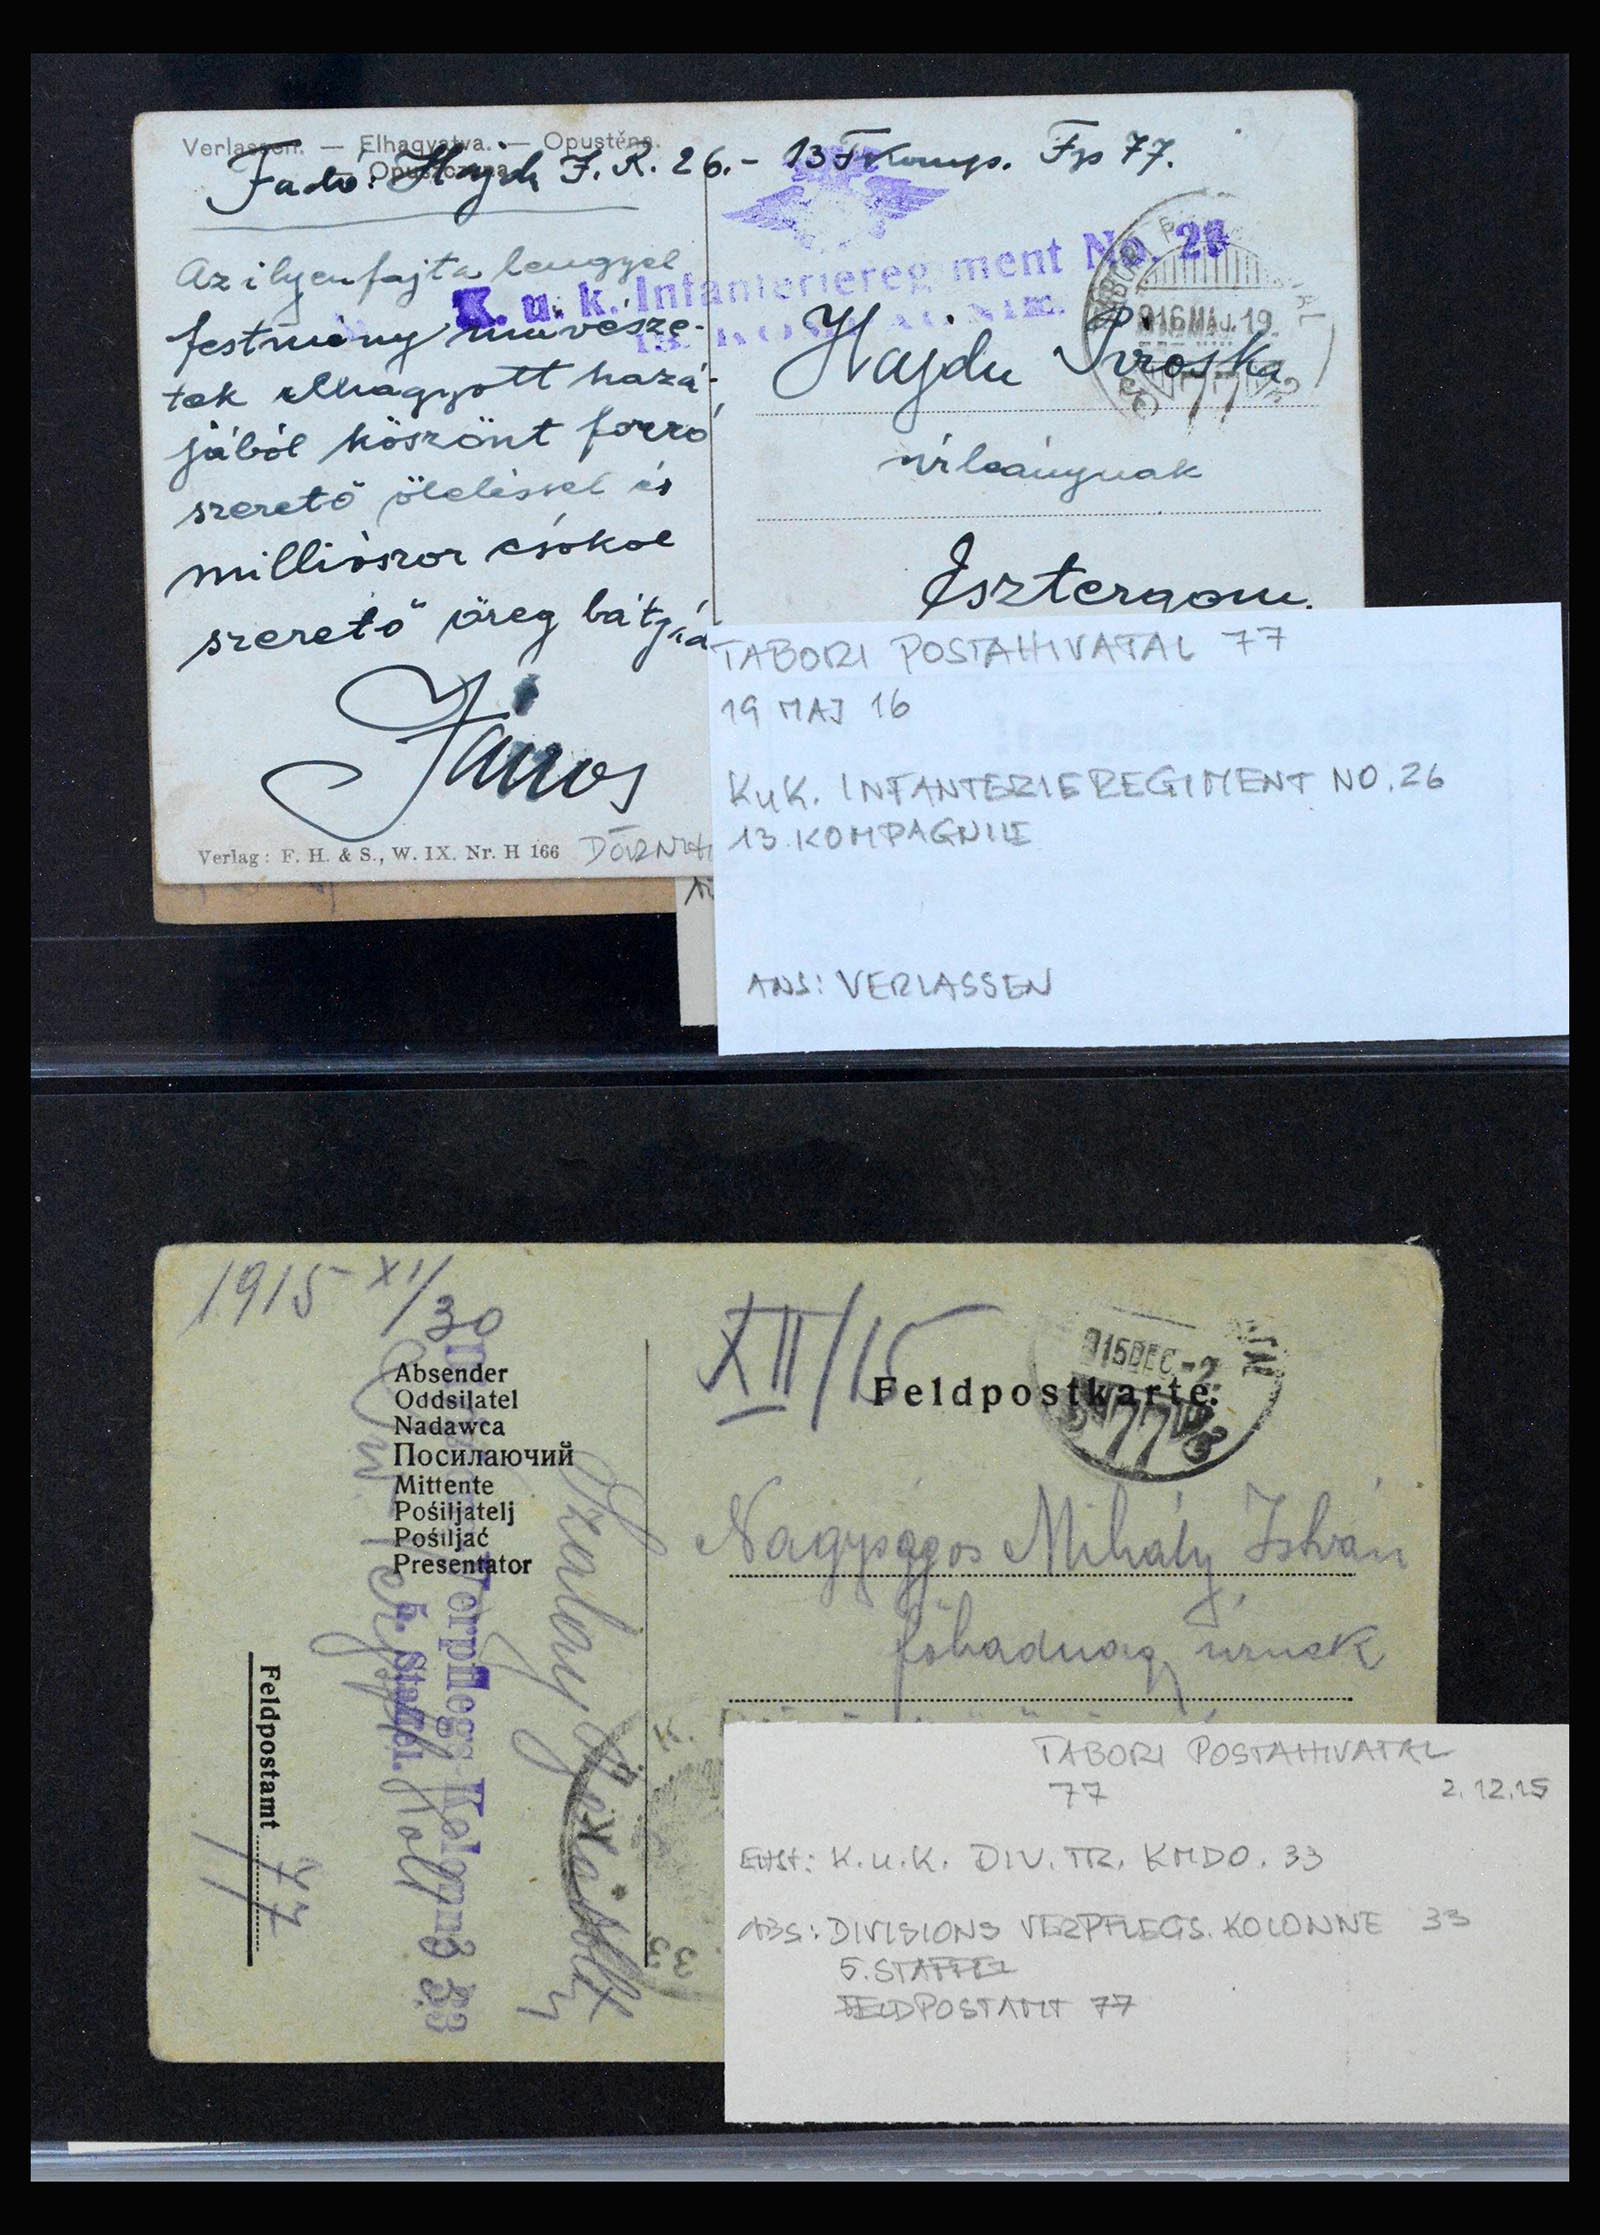 Verlassen. — Elhagyatva. — Opustěna.
Hajdu J. R. 26. - 13 Komp. Fp 77.
K. u. k. Infanteriereg ment No. 26
916 MAJ. 19
77
Az ilyenfajta lengyel
festmény művésze-
tek elhagyott hazá-
jából köszönt forró
szerető öleléssel és
milliószor csókol
szerető öreg bátyja
János
Hajdu Piroska
úrleánynak
Esztergom.
Verlag: F. H. & S., W. IX. Nr. H 166
TABORI POSTAHIVATAL 77
19 MAJ 16
KuK. INFANTERIEREGIMENT NO. 26
13. KOMPAGNIE
ANS: VERLASSEN
1915 XI/30
XII/15
Absender
Oddsilatel
Nadawca
Посилаючий
Mittente
Pośiljatelj
Pośiljać
Presentator
Feldpostkarte.
915 DEC -2
77
Verpflegs-Kolonne 33
5. Staffel.
Szalay
Feldpostamt 77
Nagyságos Mihály István
főhadnagy úrnak
33
TABORI POSTAHIVATAL
77
2.12.15
K.u.K. DIV. TR. KMDO. 33
ABS: DIVISIONS VERPFLEGS. KOLONNE 33
5. STAFFEL
FELDPOSTAMT 77